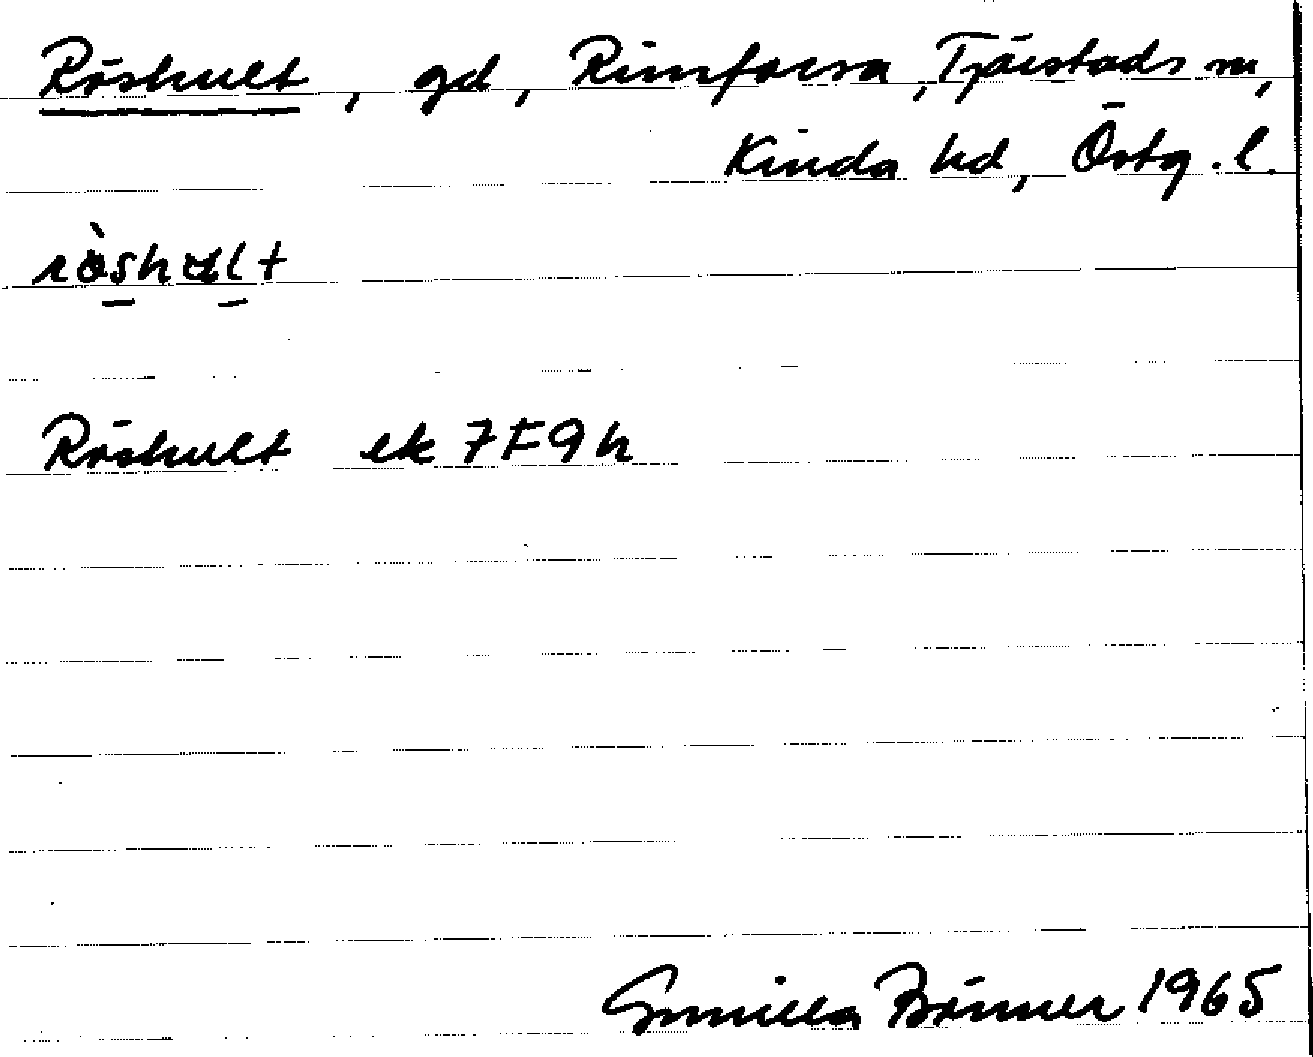 Röshult, gd, Rimforsa, Tjärstads sn,
Kinda hd, Östg. l.
Röshult ek 7F9h
Gunilla 1965